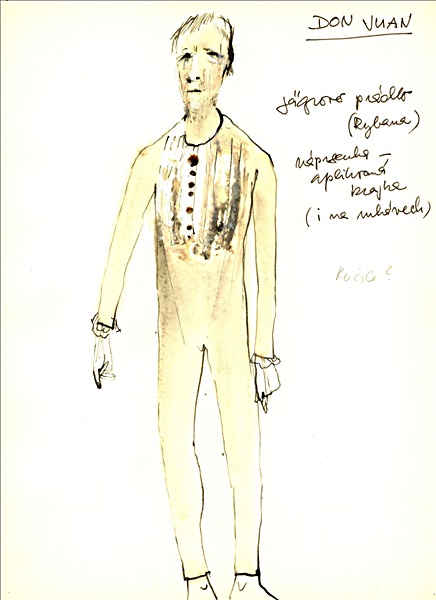 DON JUAN
Jägrovo prádlo
(Rybana)
náprsenka –
aplikovaná
krajka
(i na rukávech)
Košile?